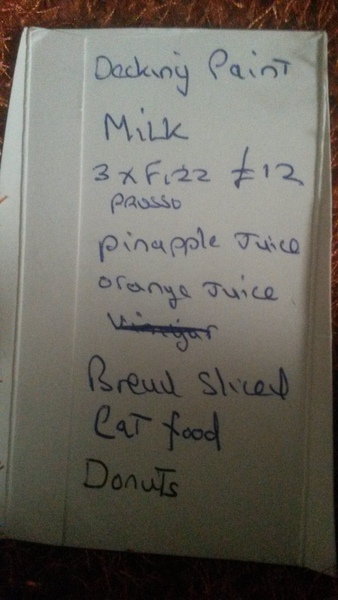 Decking Paint
MiLK
3 x Fizz £12
PROSSO
pinapple Juice
orange Juice
Vinigar
Bread Sliced
Cat food
Donuts